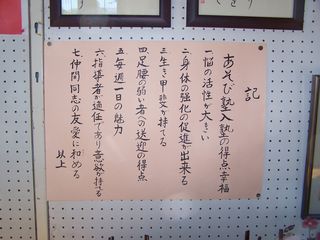 記
あそび塾入塾の得点・幸福
一、脳の活性が大きい
二、身体の強化の促進が出来る
三、生き甲斐が持てる
四、足腰の弱い者への送迎の得点
五、毎週一日の魅力
六、指導者が適任であり意欲が持てる
七、仲間同志の友愛に和める
以上